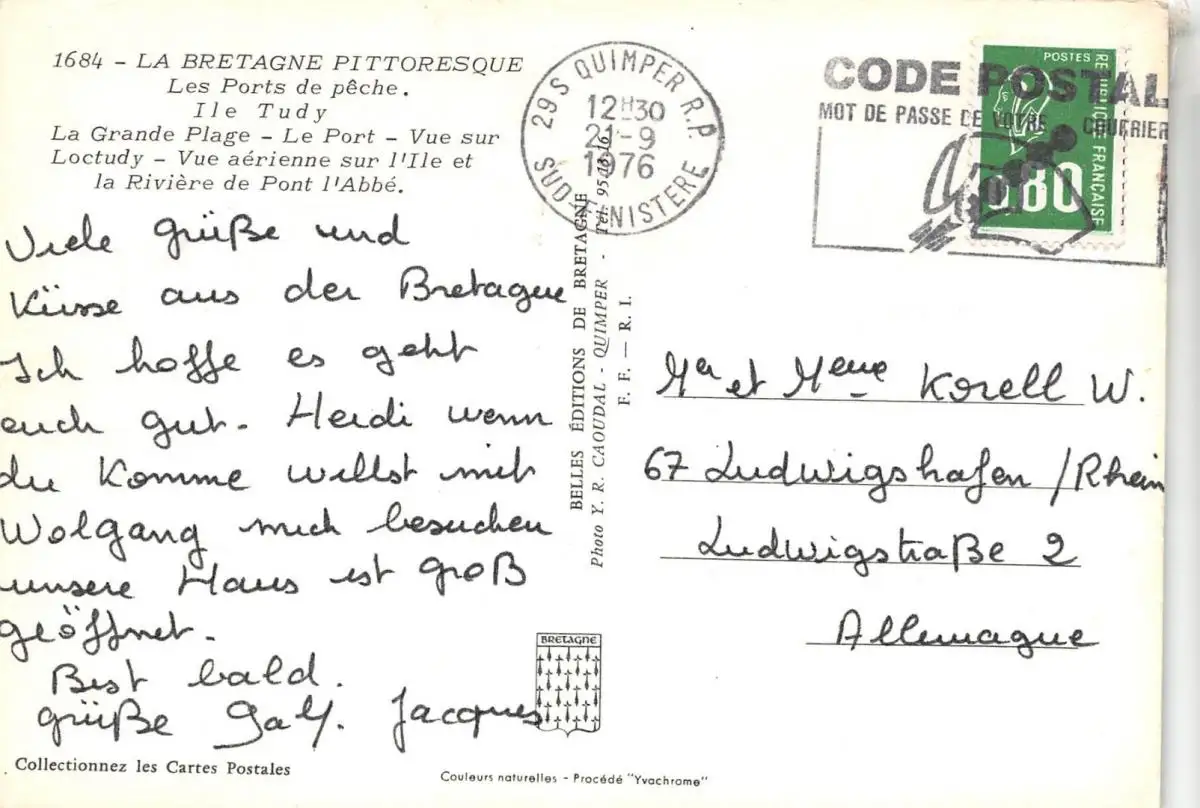 1684 - LA BRETAGNE PITTORESQUE
Les Ports de pêche.
Ile Tudy
La Grande Plage - Le Port - Vue sur
Loctudy - Vue aérienne sur l'Ile et
la Rivière de Pont l'Abbé.
29 S QUIMPER R.P.
12H30
21-9
1976
SUD-FINISTERE
CODE POSTAL
MOT DE PASSE DE VOTRE COURRIER
POSTES
REPUBLIQUE FRANÇAISE
0,80
Viele grüße und
Küsse aus der Bretagne
Ich hoffe es geht
euch gut. Heidi wenn
du Komme willst mit
Wolgang mich besuchen
unsere Haus ist groß
geöffnet.
Best bald.
grüße Jacques
BELLES ÉDITIONS DE BRETAGNE
Photo Y. R. CAOUDAL - QUIMPER - Tél. 95
F. F. — R. I.
Mr et Mme Korell W.
67 Ludwigshafen /Rhein
Ludwigstraße 2
Allemague
BRETAGNE
Collectionnez les Cartes Postales
Couleurs naturelles - Procédé "Yvachrome"